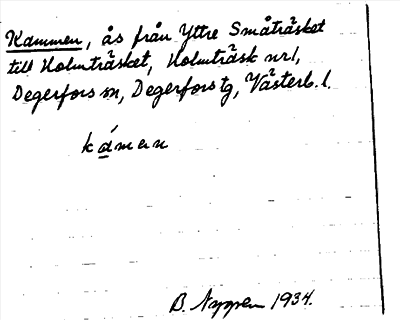 Kammen, ås från Yttre Småträsket
till Holmträsket, Holmträsk nr 1,
Degerfors sn, Degerfors tg, Västerb. l.
kámen
B. 1934.